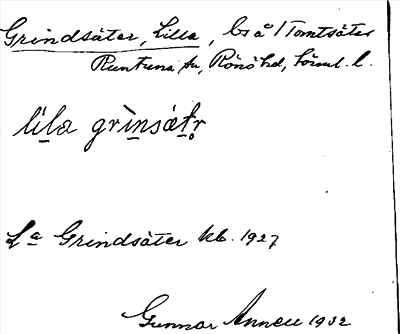 Grindsäter, Lilla, bs å /Tomtsäter
Runtuna sn, Rönö hd, Sörml. l.
lìla grìnsǽtr̥
La Grindsäter kb. 1927
Gunnar 1932